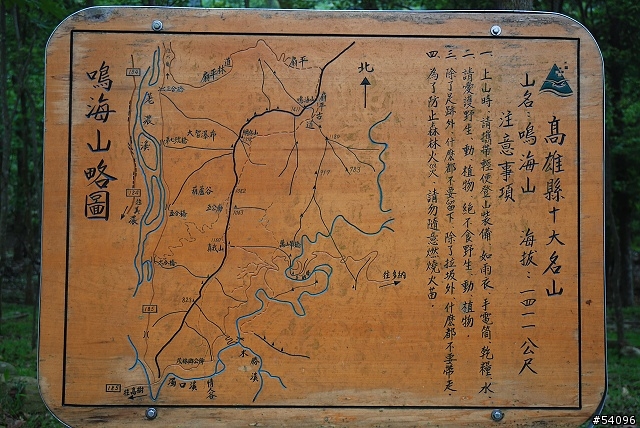 高雄縣十大名山
山名：鳴海山　海拔：一四一一公尺
注意事項
一.上山時,請攜帶輕便登山裝備,如雨衣,手電筒,乾糧,水.
二.請愛護野生、動、植物,絕不食野生、動、植物.
三.除了足跡外,什麼都不要留下,除了垃圾外,什麼都不要帶走.
四.為了防止森林火災,請勿隨意燃燒火苗.
北
鳴海山略圖
扇平林道
扇平
扇平古道
荖濃溪
大智瀑布
葫蘆谷
真我山
往多納
木勝溪
濁口溪
情人谷
往高樹
184
184
185
185
1083
917
783
823
#54096